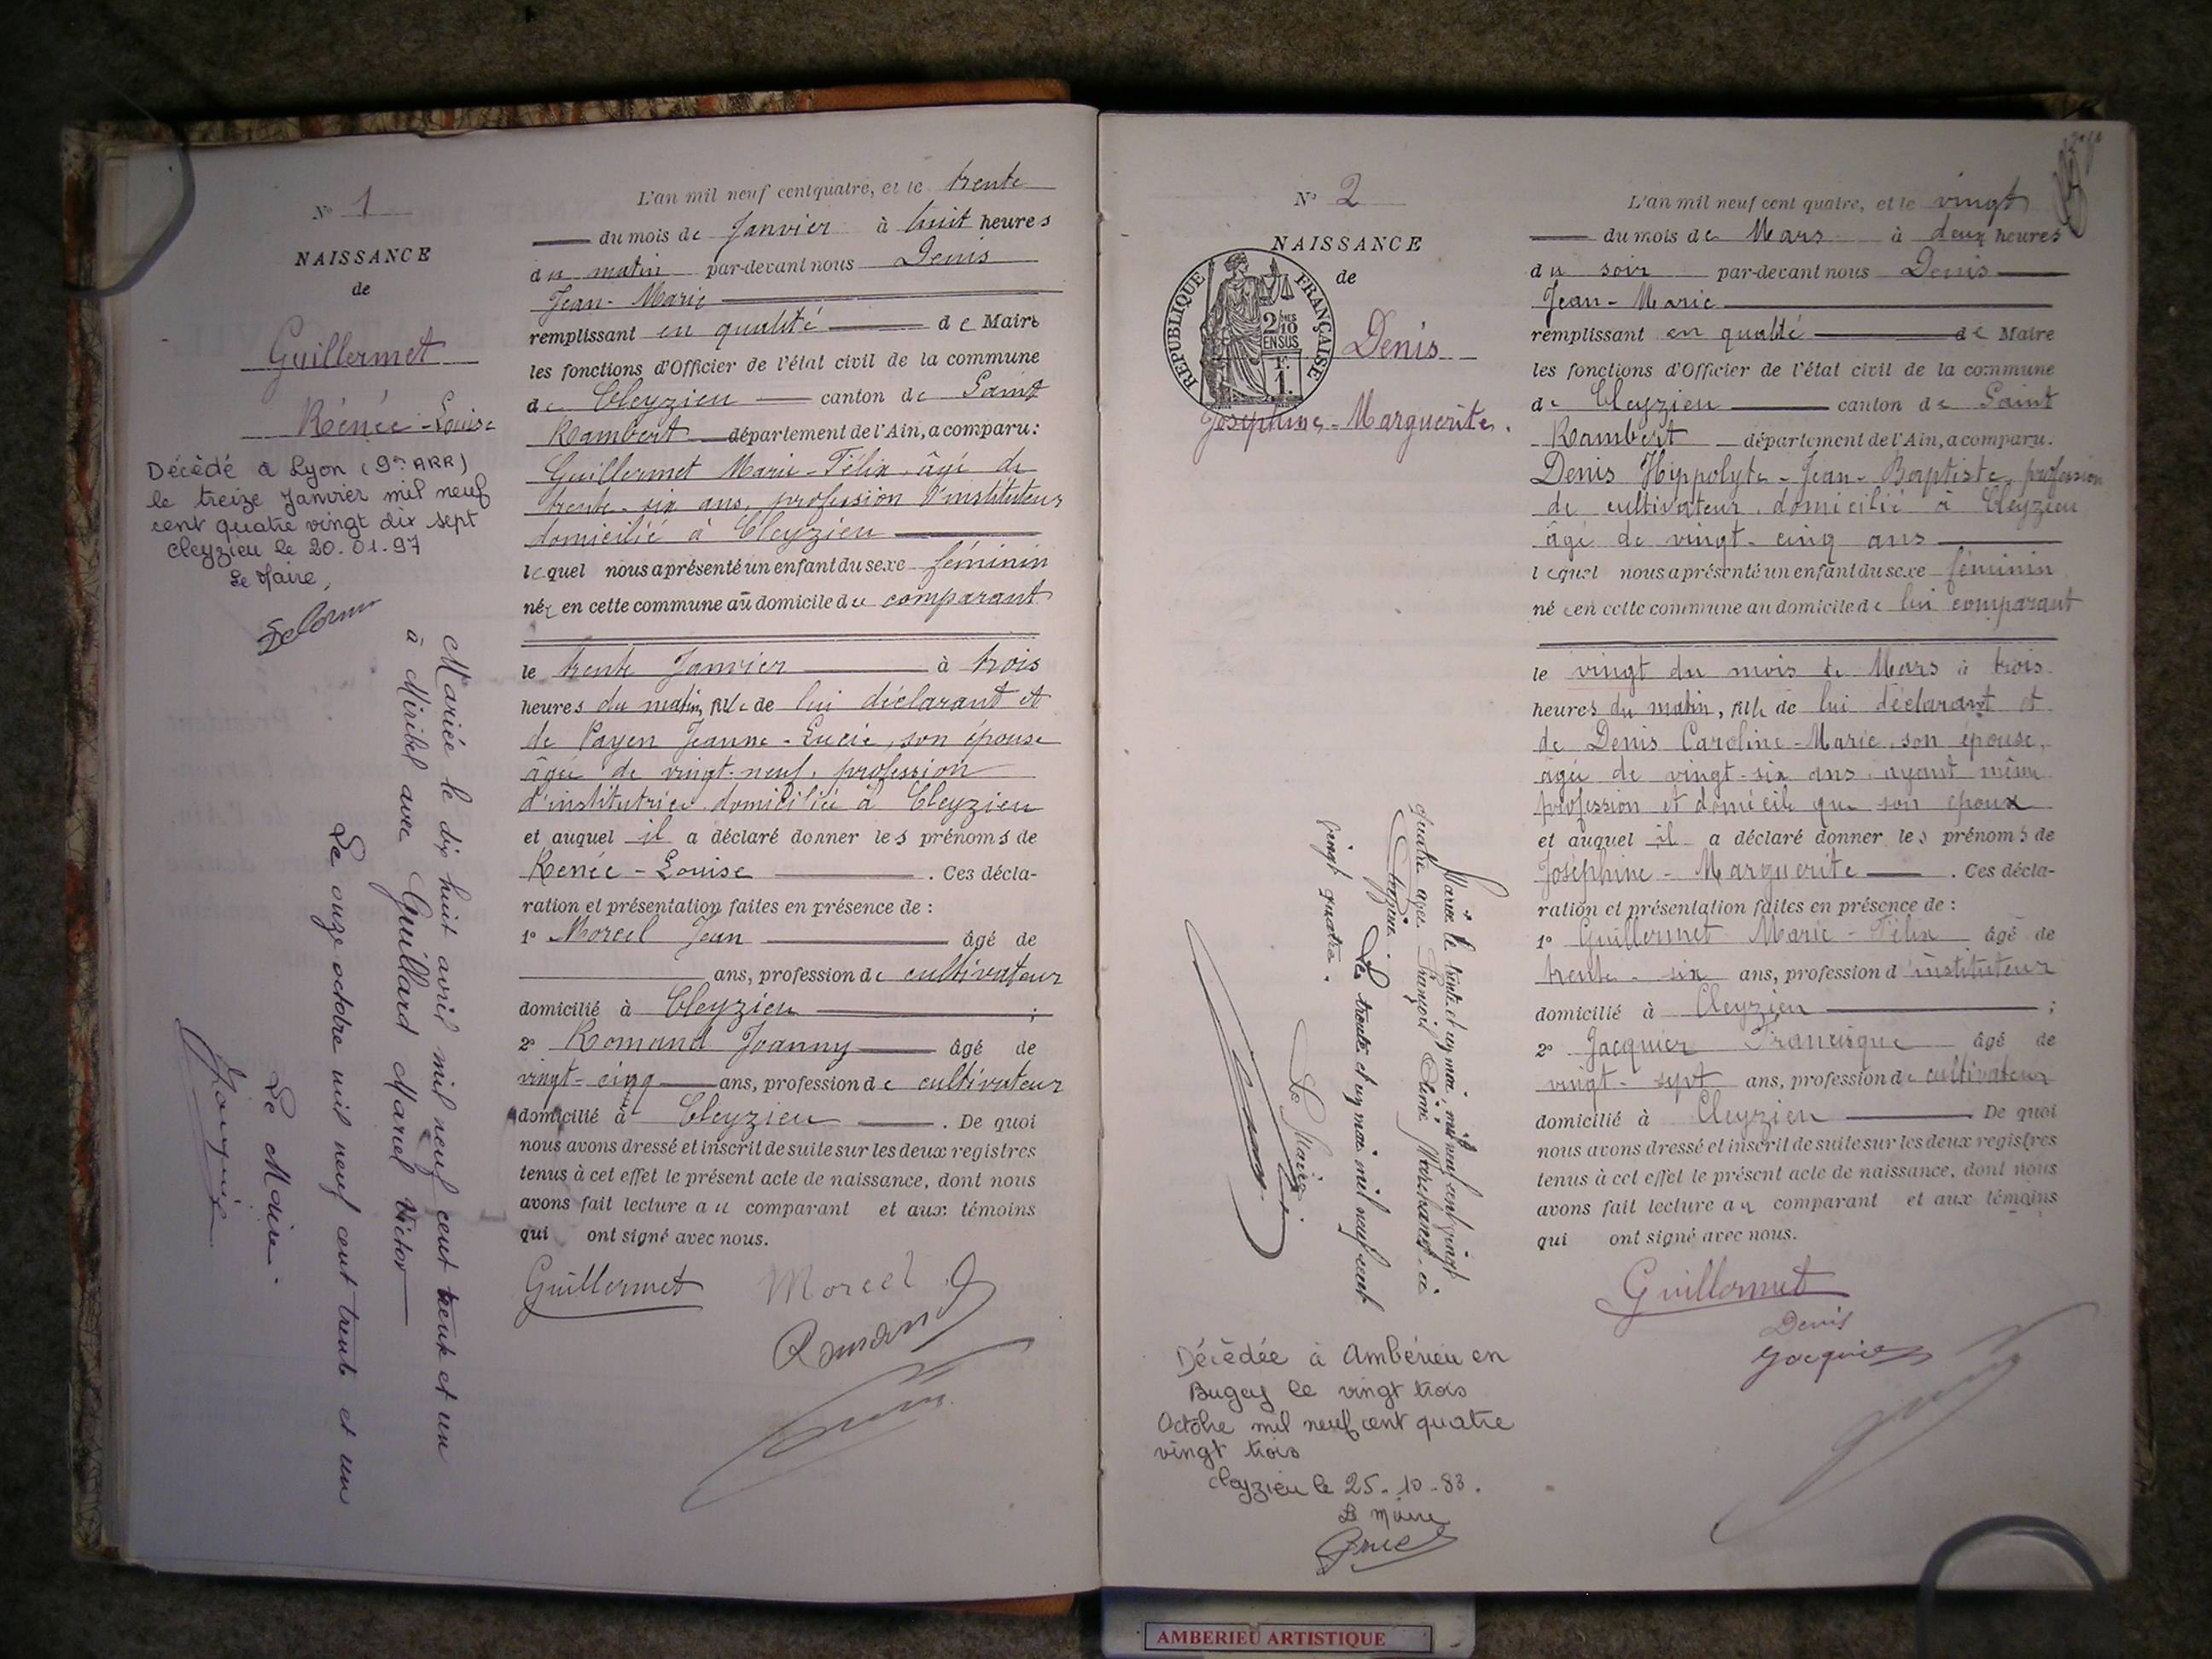 N° 1
NAISSANCE
de
Guillermet
Rénée-Louise
Décédé à Lyon (9e ARR)
le treize Janvier mil neuf
cent quatre vingt dix sept
Cleyzieu le 20.01.97
Le Maire,
Mariée le dix huit avril mil neuf cent trente et un
à Miribel avec Guillard Marcel Victor
Le onze octobre mil neuf cent trente et un
Le Maire.
L'an mil neuf cent quatre, et le trente
du mois de Janvier à huit heures
du matin par-devant nous Denis
Jean-Marie
remplissant en qualité de Maire
les fonctions d'Officier de l'état civil de la commune
de Cleyzieu canton de Saint
Rambert département de l'Ain, a comparu:
Guillermet Marie-Félix, âgé de
trente-six ans, profession d'instituteur
domicilié à Cleyzieu
lequel nous a présenté un enfant du sexe féminin
née en cette commune au domicile du comparant
le trente Janvier à trois
heures du matin, fille de lui déclarant et
de Payen Jeanne-Lucie, son épouse
âgée de vingt-neuf, profession
d'institutrice domiciliée à Cleyzieu
et auquel il a déclaré donner les prénoms de
Renée-Louise . Ces décla-
ration et présentation faites en présence de :
1° Morcel Jean âgé de
ans, profession de cultivateur
domicilié à Cleyzieu ;
2° Romand Joanny âgé de
vingt-cinq ans, profession de cultivateur
domicilié à Cleyzieu . De quoi
nous avons dressé et inscrit de suite sur les deux registres
tenus à cet effet le présent acte de naissance, dont nous
avons fait lecture au comparant et aux témoins
qui ont signé avec nous.
Guillermet Morcel J
Romand
N° 2
NAISSANCE
de
RÉPUBLIQUE FRANÇAISE
2/10 EN SUS
F. 1.
Denis
Joséphine-Marguerite.
Mariée le trente et un mai mil neuf cent vingt
quatre avec François
Cleyzieu. Le trente et un mai mil neuf cent
vingt quatre.
Le Maire
Décédée à Ambérieu en
Bugey le vingt trois
Octobre mil neuf cent quatre
vingt trois
Cleyzieu le 25.10.83.
Le Maire
L'an mil neuf cent quatre, et le vingt
du mois de Mars à deux heures
du soir par-devant nous Denis
Jean-Marie
remplissant en qualité de Maire
les fonctions d'Officier de l'état civil de la commune
de Cleyzieu canton de Saint
Rambert département de l'Ain, a comparu.
Denis Hippolyte-Jean-Baptiste, profession
de cultivateur, domicilié à Cleyzieu
âgé de vingt-cinq ans
lequel nous a présenté un enfant du sexe féminin
née en cette commune au domicile de lui comparant
le vingt du mois de Mars à trois
heures du matin, fille de lui déclarant et
de Denis Caroline-Marie, son épouse,
âgée de vingt-six ans, ayant même
profession et domicile que son époux
et auquel il a déclaré donner les prénoms de
Joséphine-Marguerite . Ces décla-
ration et présentation faites en présence de :
1° Guillermet Marie-Félix âgé de
trente-six ans, profession d'instituteur
domicilié à Cleyzieu ;
2° Jacquier Francisque âgé de
vingt-sept ans, profession de cultivateur
domicilié à Cleyzieu De quoi
nous avons dressé et inscrit de suite sur les deux registres
tenus à cet effet le présent acte de naissance, dont nous
avons fait lecture au comparant et aux témoins
qui ont signé avec nous.
Guillermet
Denis
Jacquier
AMBERIEU ARTISTIQUE